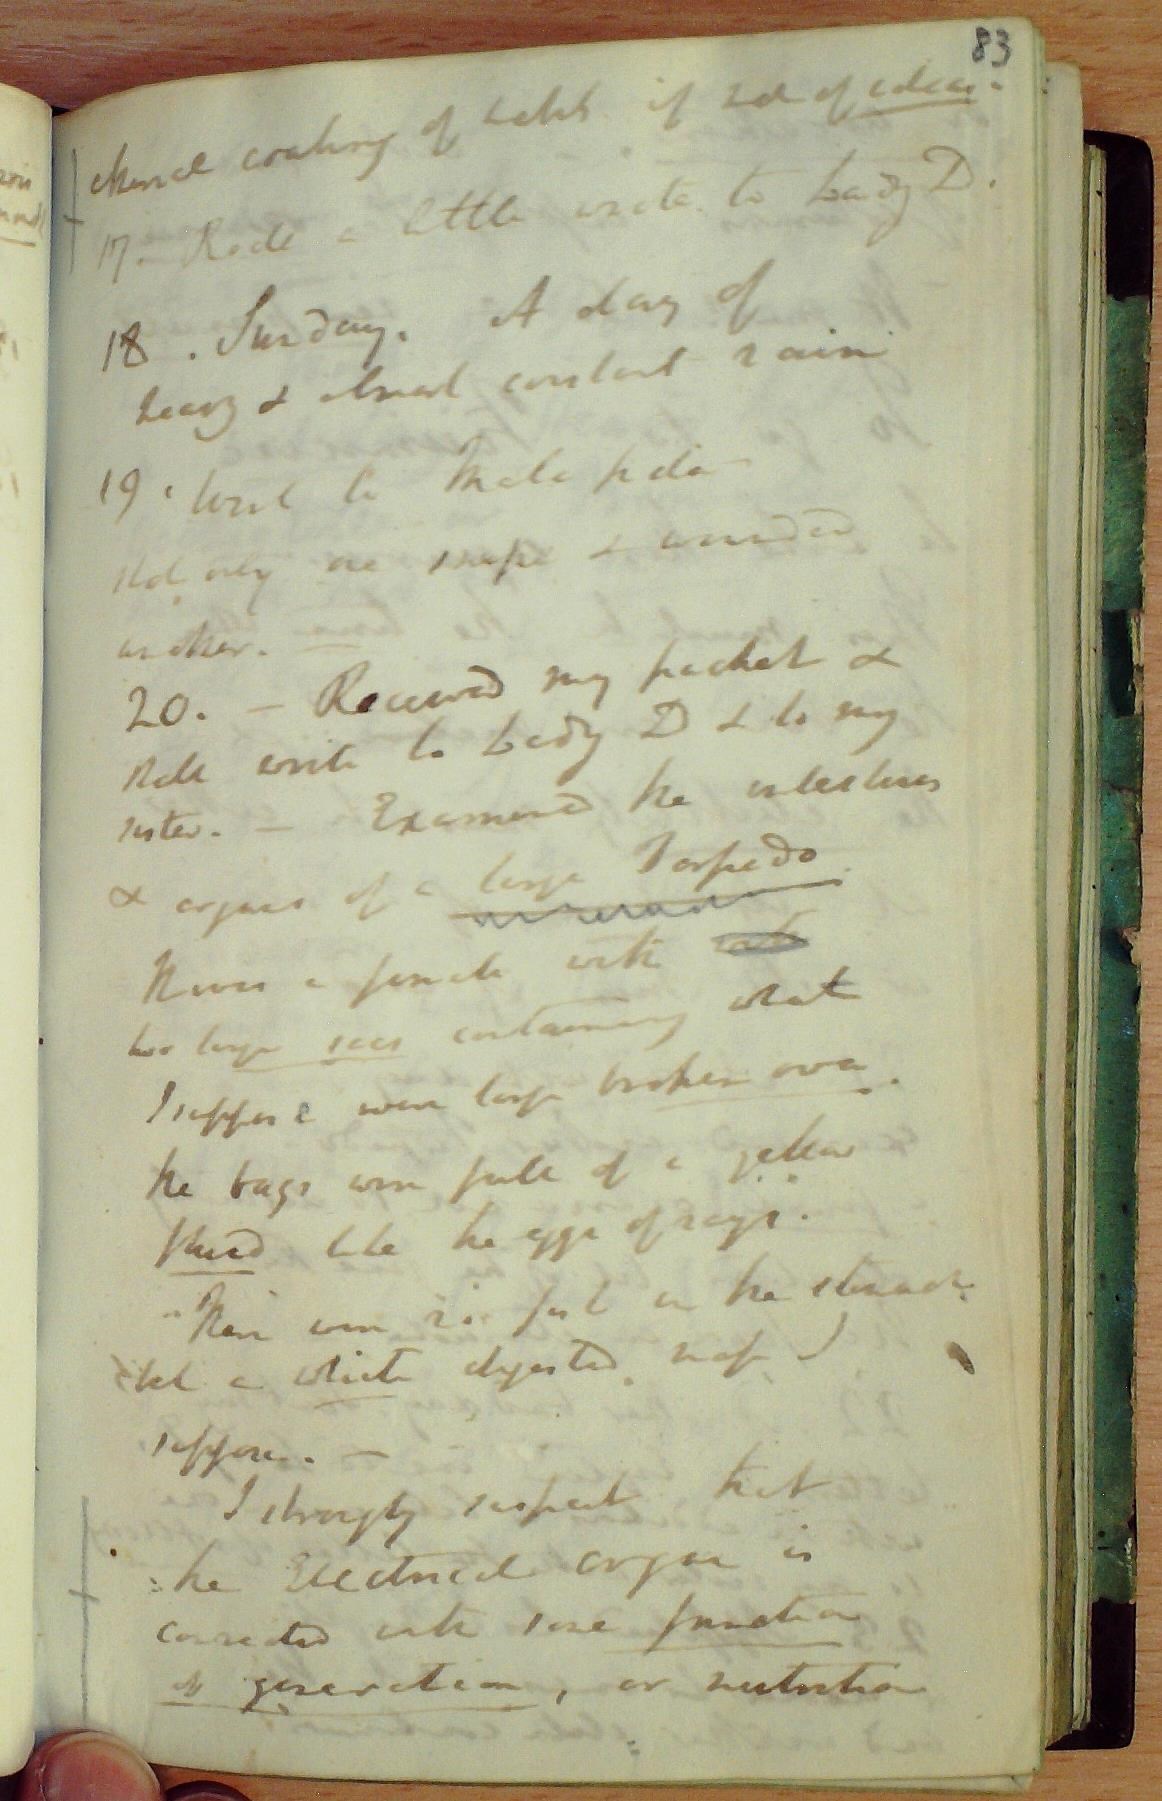 83
of if not of
17. Rode a little wrote to Lady D.
18. Sunday. A day of
heavy & almost constant rain
19. Went to
shot only one snipe & wounded
another.
20. — Received my packet &
wrote to Lady D & to my
sister. — Examined the intestines
& organs of a large Torpedo
a female with
two large sacs containing what
I suppose were large broken ova.
the bags were full of a yellow
fluid like the eggs of rays.
There were no fish in the stomach
but a white digested I
suppose. —
I strongly suspect that
the Electrical organ is
connected with some function
of generation, or nutrition